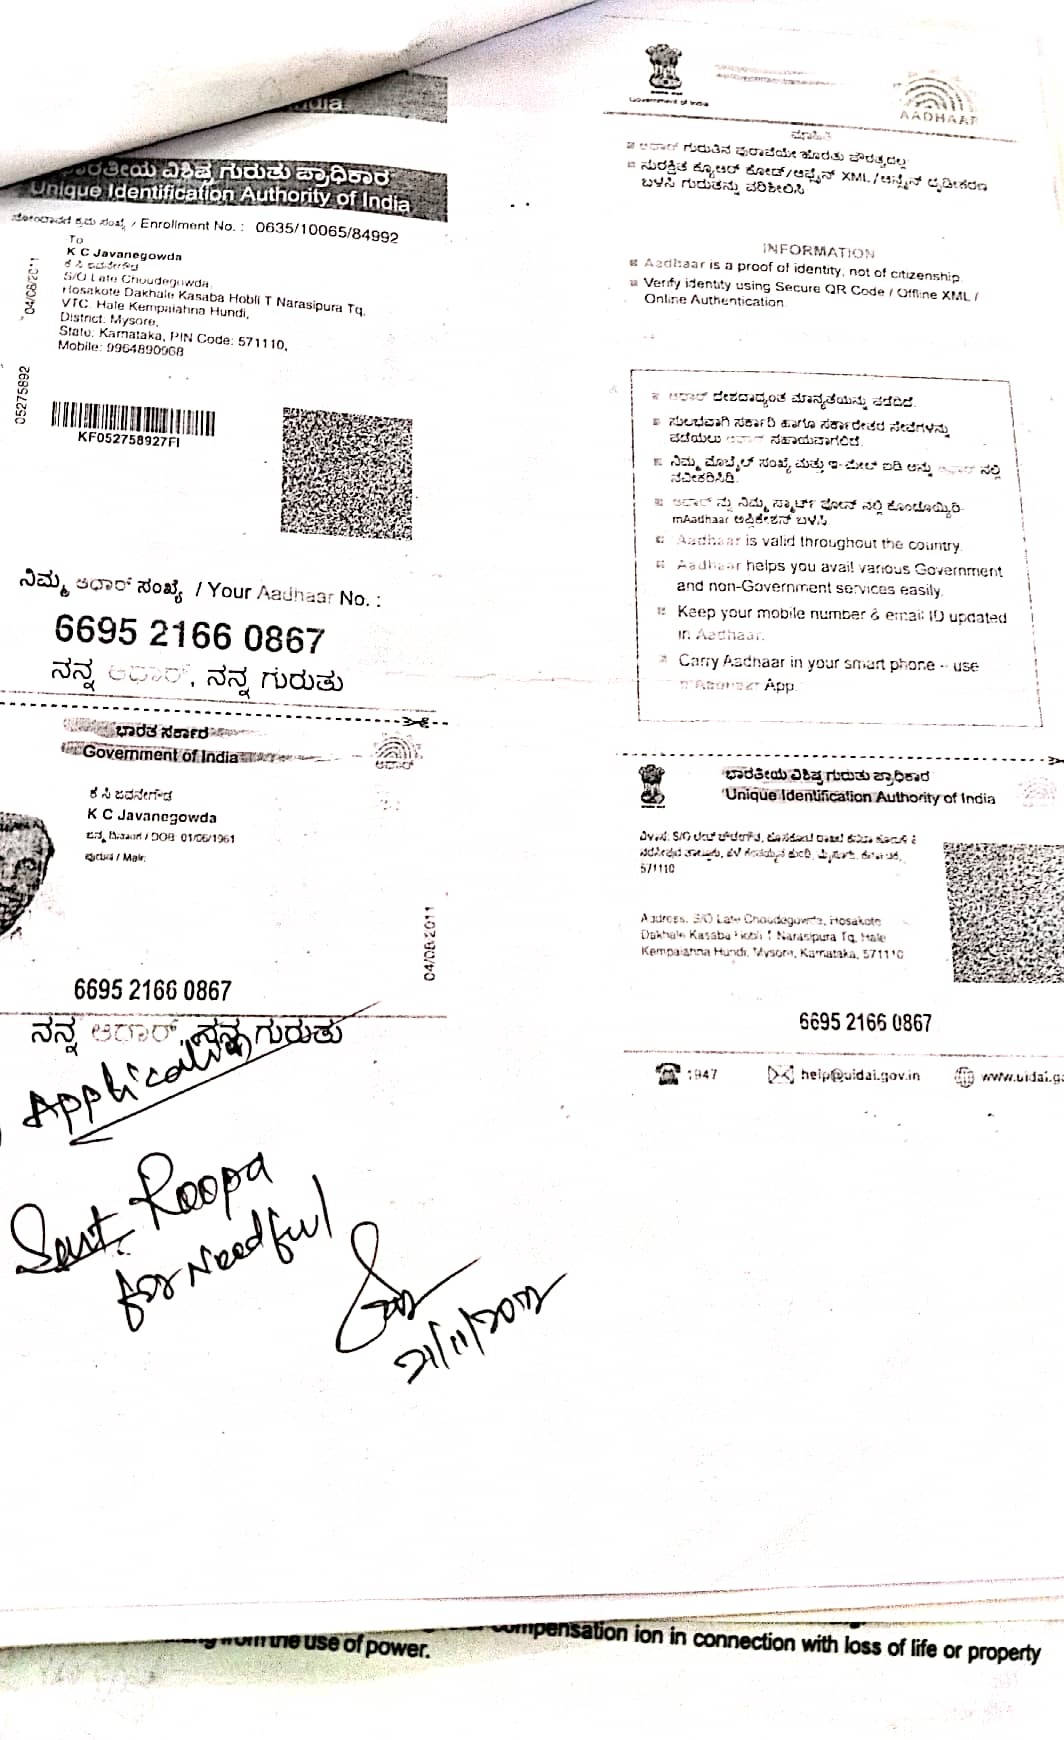 ಭಾರತೀಯ ವಿಶಿಷ್ಟ ಗುರುತು ಪ್ರಾಧಿಕಾರ
Unique Identification Authority of India
ನೋಂದಾವಣೆ ಕ್ರಮ ಸಂಖ್ಯೆ / Enrollment No. : 0635/10065/84992
To
K C Javanegowda
ಕ ಸಿ ಜವನೇಗೌಡ
S/O Late Choudegowda,
Hosakote Dakhale Kasaba Hobli T Narasipura Tq,
VTC: Hale Kempaiahna Hundi,
District: Mysore,
State: Karnataka, PIN Code: 571110,
Mobile: 9964890968
04/08/2011
05275892
KF052758927FI
ನಿಮ್ಮ ಆಧಾರ್ ಸಂಖ್ಯೆ / Your Aadhaar No. :
6695 2166 0867
ನನ್ನ ಆಧಾರ್, ನನ್ನ ಗುರುತು
ಭಾರತ ಸರ್ಕಾರ
Government of India
ಆಧಾರ್
ಕ ಸಿ ಜವನೇಗೌಡ
K C Javanegowda
ಜನ್ಮ ದಿನಾಂಕ / DOB: 01/06/1961
ಪುರುಷ / Male
04/08/2011
6695 2166 0867
ನನ್ನ ಆಧಾರ್, ನನ್ನ ಗುರುತು
Application
Smt. Roopa
for Needful
21/11/2022
Government of India
AADHAAR
ಮಾಹಿತಿ
ಆಧಾರ್ ಗುರುತಿನ ಪುರಾವೆಯೇ ಹೊರತು ಪೌರತ್ವದಲ್ಲ
ಸುರಕ್ಷಿತ ಕ್ಯೂಆರ್ ಕೋಡ್/ಆಫ್ಲೈನ್ XML/ಆನ್ಲೈನ್ ದೃಢೀಕರಣ
ಬಳಸಿ ಗುರುತನ್ನು ಪರಿಶೀಲಿಸಿ
INFORMATION
Aadhaar is a proof of identity, not of citizenship.
Verify identity using Secure QR Code / Offline XML /
Online Authentication
ಆಧಾರ್ ದೇಶದಾದ್ಯಂತ ಮಾನ್ಯತೆಯನ್ನು ಪಡೆದಿದೆ.
ಸುಲಭವಾಗಿ ಸರ್ಕಾರಿ ಹಾಗೂ ಸರ್ಕಾರೇತರ ಸೇವೆಗಳನ್ನು
ಪಡೆಯಲು ಆಧಾರ್ ಸಹಾಯವಾಗಲಿದೆ.
ನಿಮ್ಮ ಮೊಬೈಲ್ ಸಂಖ್ಯೆ ಮತ್ತು ಇ-ಮೇಲ್ ಐಡಿ ಅನ್ನು ಆಧಾರ್ ನಲ್ಲಿ
ನವೀಕರಿಸಿದಿ.
ಆಧಾರ್ ನ್ನು ನಿಮ್ಮ ಸ್ಮಾರ್ಟ್ ಫೋನ್ ನಲ್ಲಿ ಕೊಂಡೊಯ್ಯಿರಿ-
mAadhaar ಅಪ್ಲಿಕೇಶನ್ ಬಳಸಿ
Aadhaar is valid throughout the country.
Aadhaar helps you avail various Government
and non-Government services easily.
Keep your mobile number & email ID updated
in Aadhaar.
Carry Aadhaar in your smart phone – use
mAadhaar App.
ಭಾರತೀಯ ವಿಶಿಷ್ಟ ಗುರುತು ಪ್ರಾಧಿಕಾರ
Unique Identification Authority of India
571110
Address: S/O Late Choudegowda, Hosakote
Dakhale Kasaba Hobli T Narasipura Tq, Hale
Kempaiahna Hundi, Mysore, Karnataka, 571110
6695 2166 0867
1947 help@uidai.gov.in www.uidai.g
the use of power.
compensation ion in connection with loss of life or property